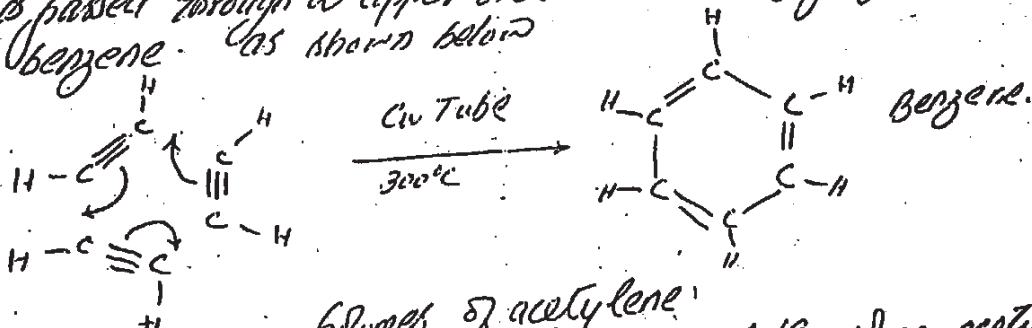 is passed through a copper
benzene. as shown below
H
C
H - C
H
C
C - H
H - C
C
H
Cu Tube
300°C
H
C
H - C
C - H
H - C
C - H
C
H
Benzene.
of acetylene